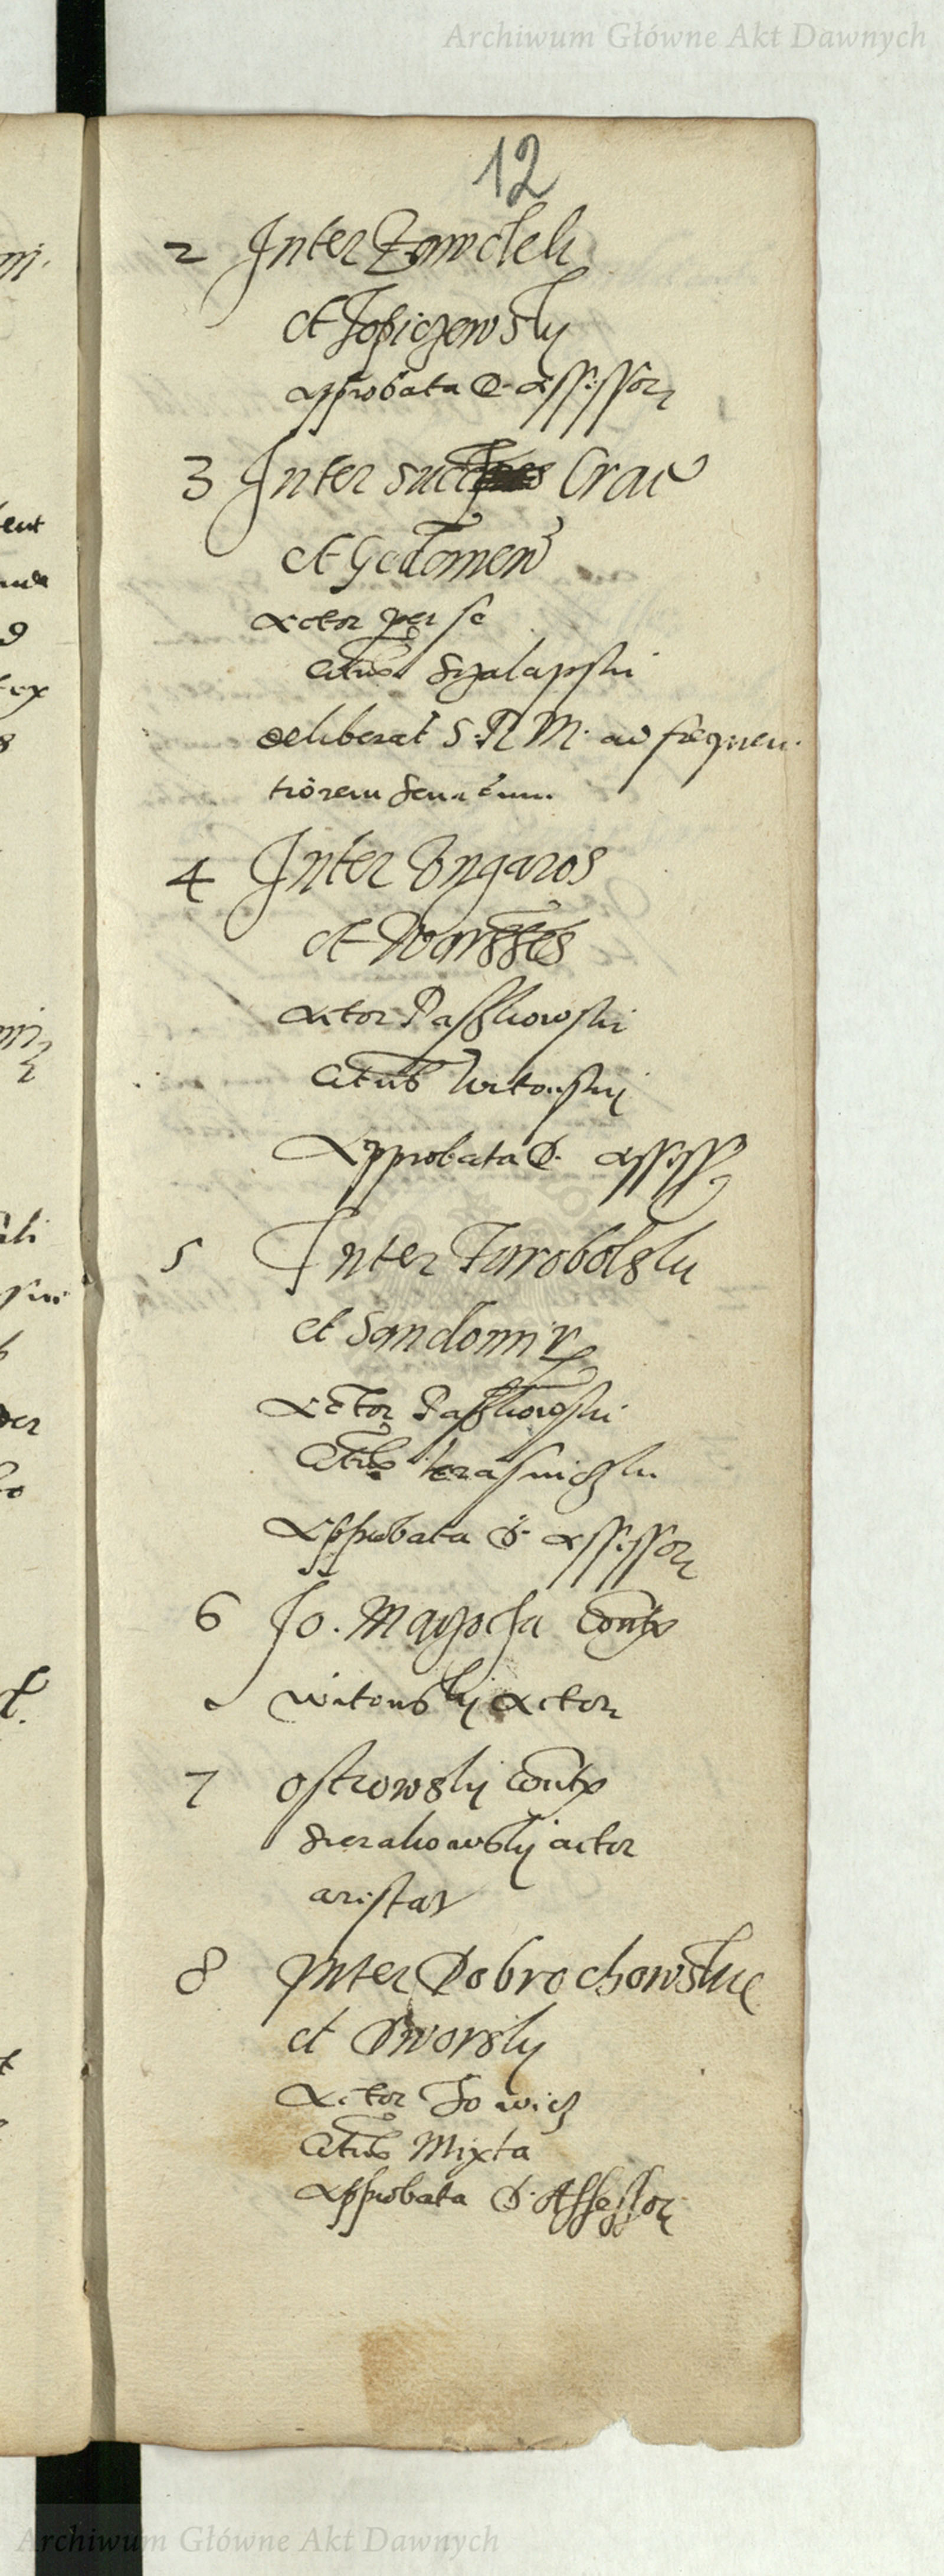 Archiwum Główne Akt Dawnych
12
2 Inter Zawdek
et Jopiczewsky
approbata D. Assessor
3 Inter Crac
et Gedomen
Actor per se
Citus Szalapski
deliberat S. R. M. ad frequen
tiorem senatum
4 Inter Ungaros
et Warsses
Actor Passkowski
Citus Witonskij
Approbata D. assess
5 Inter Turobolsku
et Sandomir
Actor Passkowski
Citus
Approbata D. Assessor
6 Jo. Mayocha contx
witonskij Actor
7 ostrowskij contx
sierakowskij actor
aristat
8 Inter Dobrochowskie
et Dworsky
Actor Jowicz
Citus Mixta
Approbata D. Assessor
Archiwum Główne Akt Dawnych